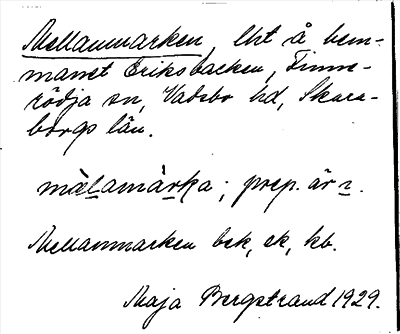 Mellanmarken, lht å hem-
manet Eriksbacken, Finne-
rödja sn, Vadsbo hd, Skara-
borgs län.
mälamàrka; prep. är i.
Mellanmarken bek, ek, kb.
Maja Bergstrand 1929.